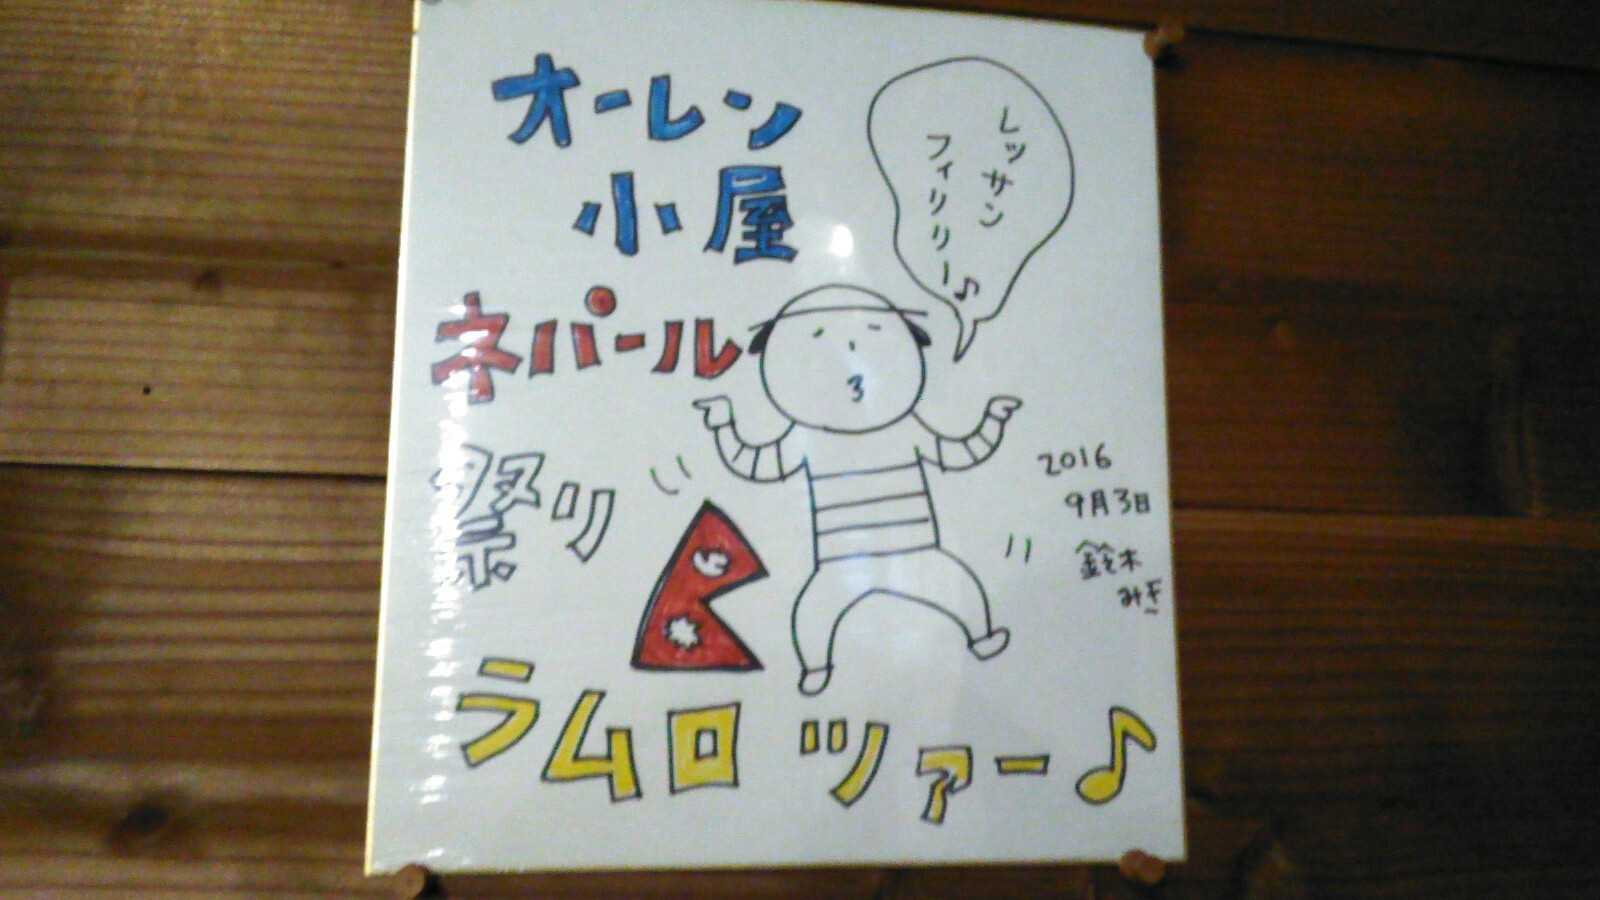 オーレン
小屋
ネパール
祭り
ラムロ ツァー♪
レッサン
フィリリー♪
2016
9月3日
鈴木
みき